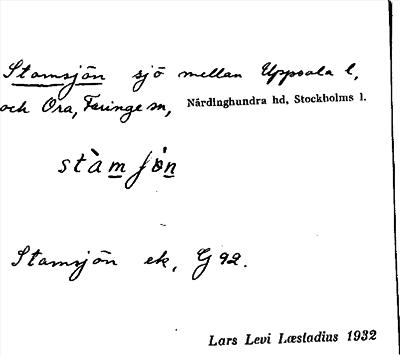 Stamsjön sjö mellan Uppsala l,
och Ora, Faringe sn, Närdinghundra hd, Stockholms l.
stàmʃö̀n
Stamsjön ek, G 92.
Lars Levi Læstadius 1932